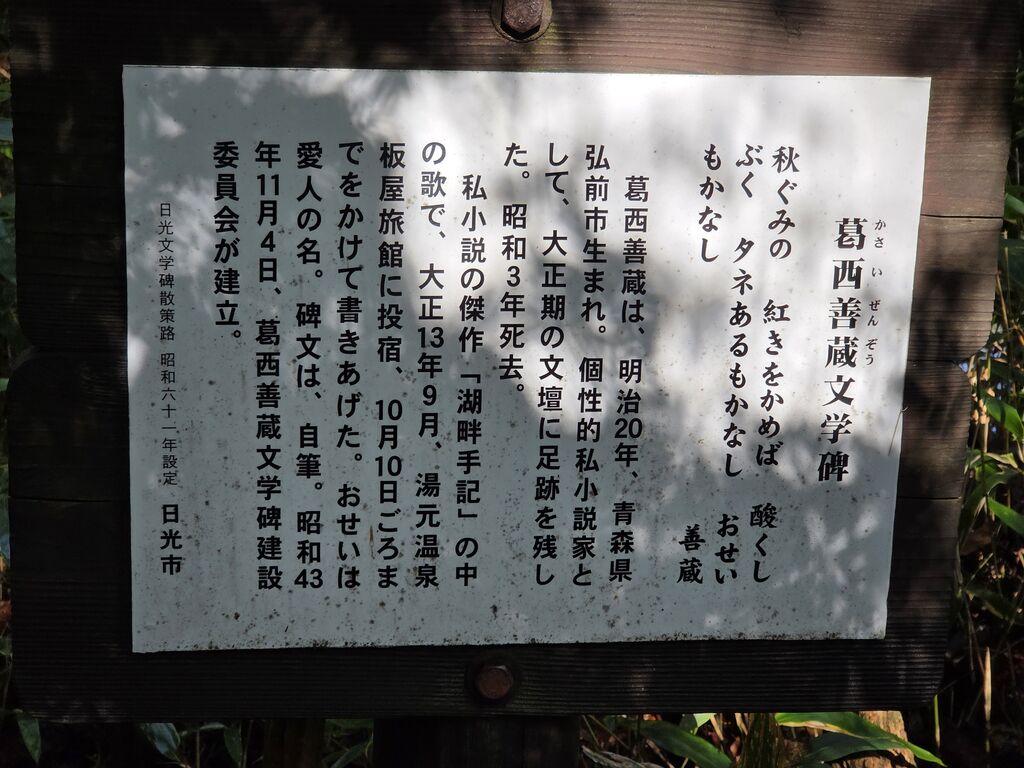 葛西善蔵文学碑
かさい ぜんぞう
秋ぐみの 紅きをかめば 酸くし
ぶく タネあるもかなし おせい
もかなし 善蔵
葛西善蔵は、明治20年、青森県
弘前市生まれ。個性的私小説家と
して、大正期の文壇に足跡を残し
た。昭和3年死去。
私小説の傑作「湖畔手記」の中
の歌で、大正13年9月、湯元温泉
板屋旅館に投宿、10月10日ごろま
でをかけて書きあげた。おせいは
愛人の名。碑文は、自筆。昭和43
年11月4日、葛西善蔵文学碑建設
委員会が建立。
日光文学碑散策路 昭和六十一年設定 日光市